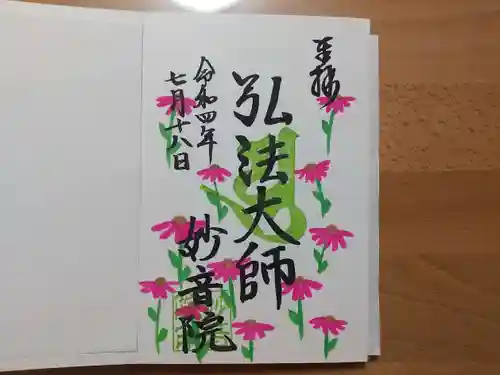 奉拝
弘法大師
妙音院
令和四年
七月十八日